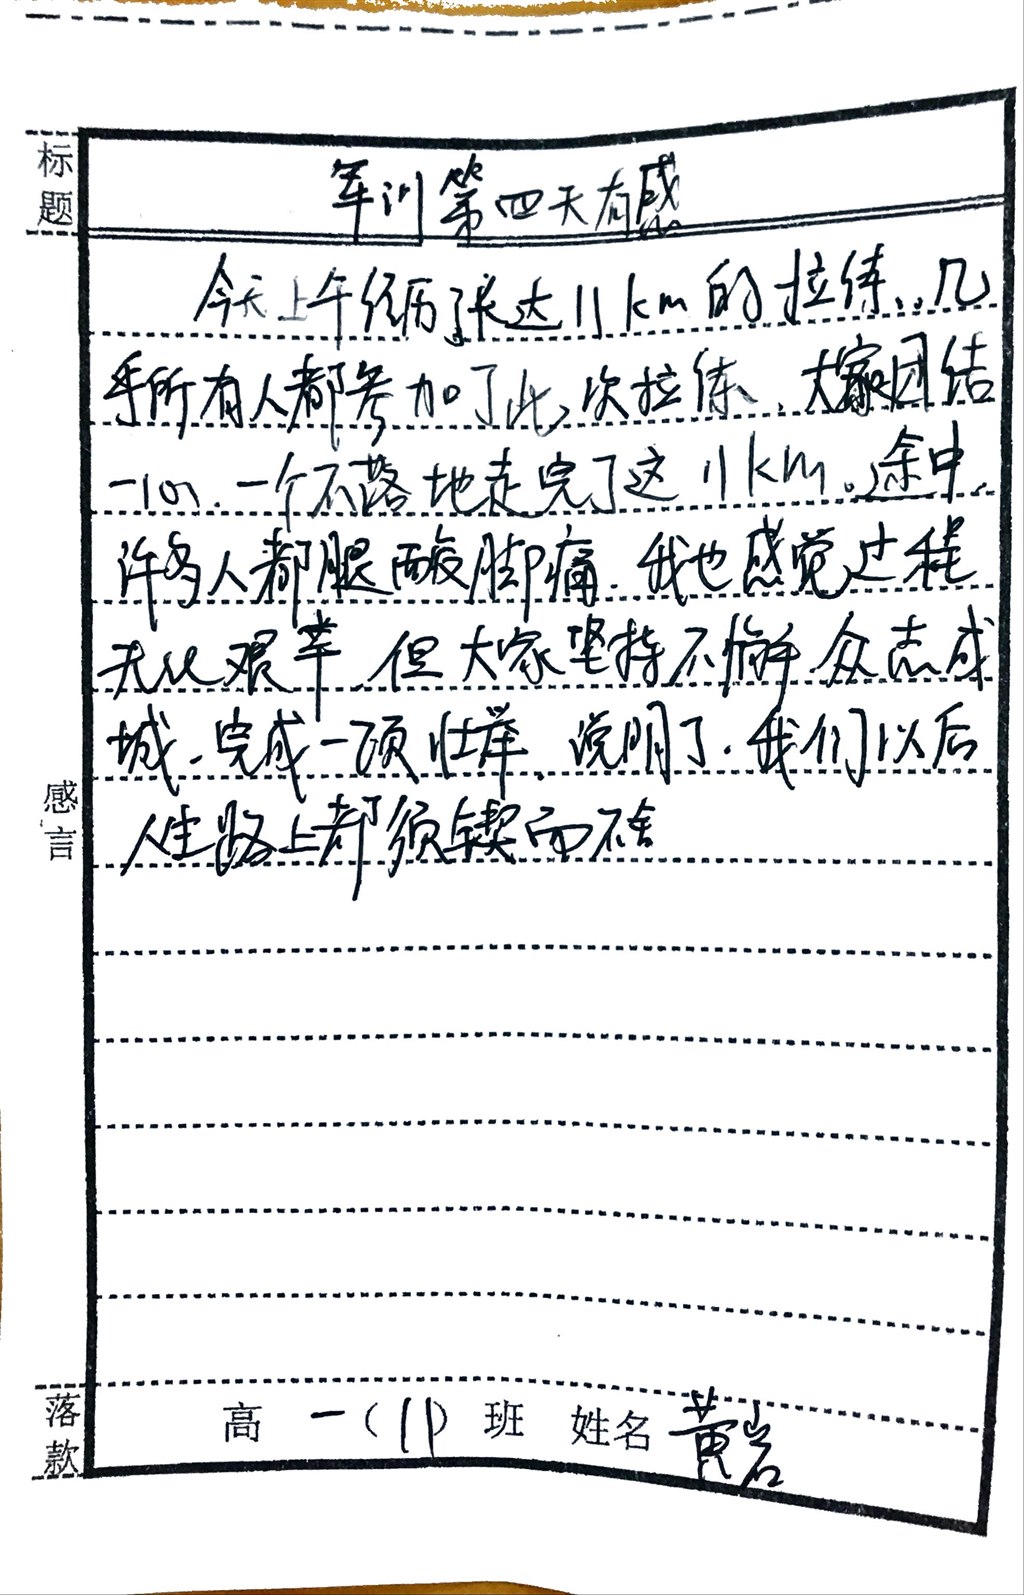 标题
军训第四天有感
今天上午经历了长达11km的拉练，几
乎所有人都参加了此次拉练、大家团结
一心、一个不落地走完了这11km。途中，
许多人都腿酸脚痛、我也感觉过程
无比艰辛、但大家坚持不懈、众志成
城、完成一项壮举、说明了、我们以后
人生路上都须锲而不舍
感言
落款
高一(11)班 姓名 黄岩